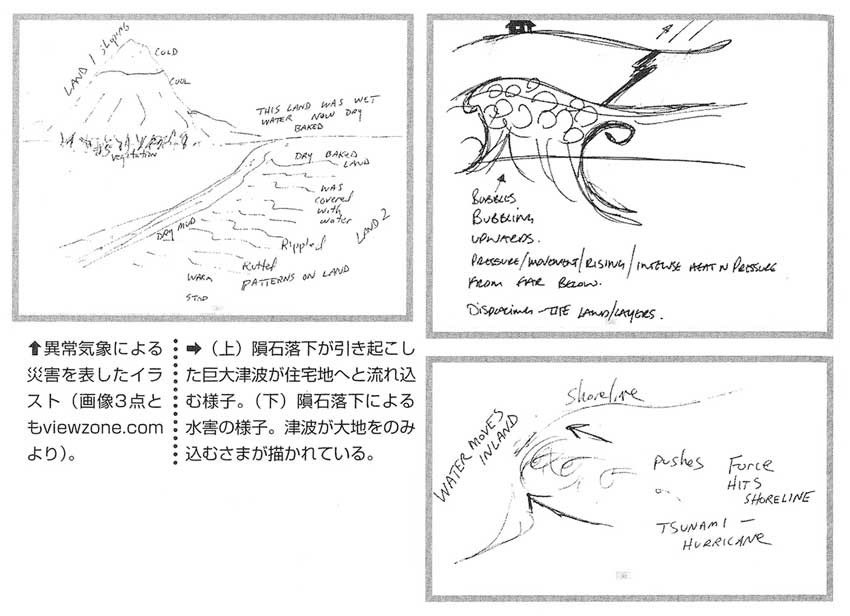 LAND 1 sloping
COLD
COOL
vegetation
THIS LAND WAS WET
WATER NOW DRY
BAKED
DRY BAKED
LAND
WAS
covered
with
water
LAND 2
DRY MUD
Rippled
Rutted
PATTERNS ON LAND
WARM
BUBBLES
BUBBLING
UPWARDS.
PRESSURE/MOVEMENT/RISING/INTENSE HEAT N PRESSURE
FROM FAR BELOW.
DISPLACING - THE LAND/LAYERS.
⬆異常気象による
災害を表したイラ
スト(画像3点と
もviewzone.com
より)。
➡(上)隕石落下が引き起こし
た巨大津波が住宅地へと流れ込
む様子。(下)隕石落下による
水害の様子。津波が大地をのみ
込むさまが描かれている。
Shoreline
WATER MOVES
INLAND
pushes
Force
HITS
SHORELINE
TSUNAMI —
HURRICANE